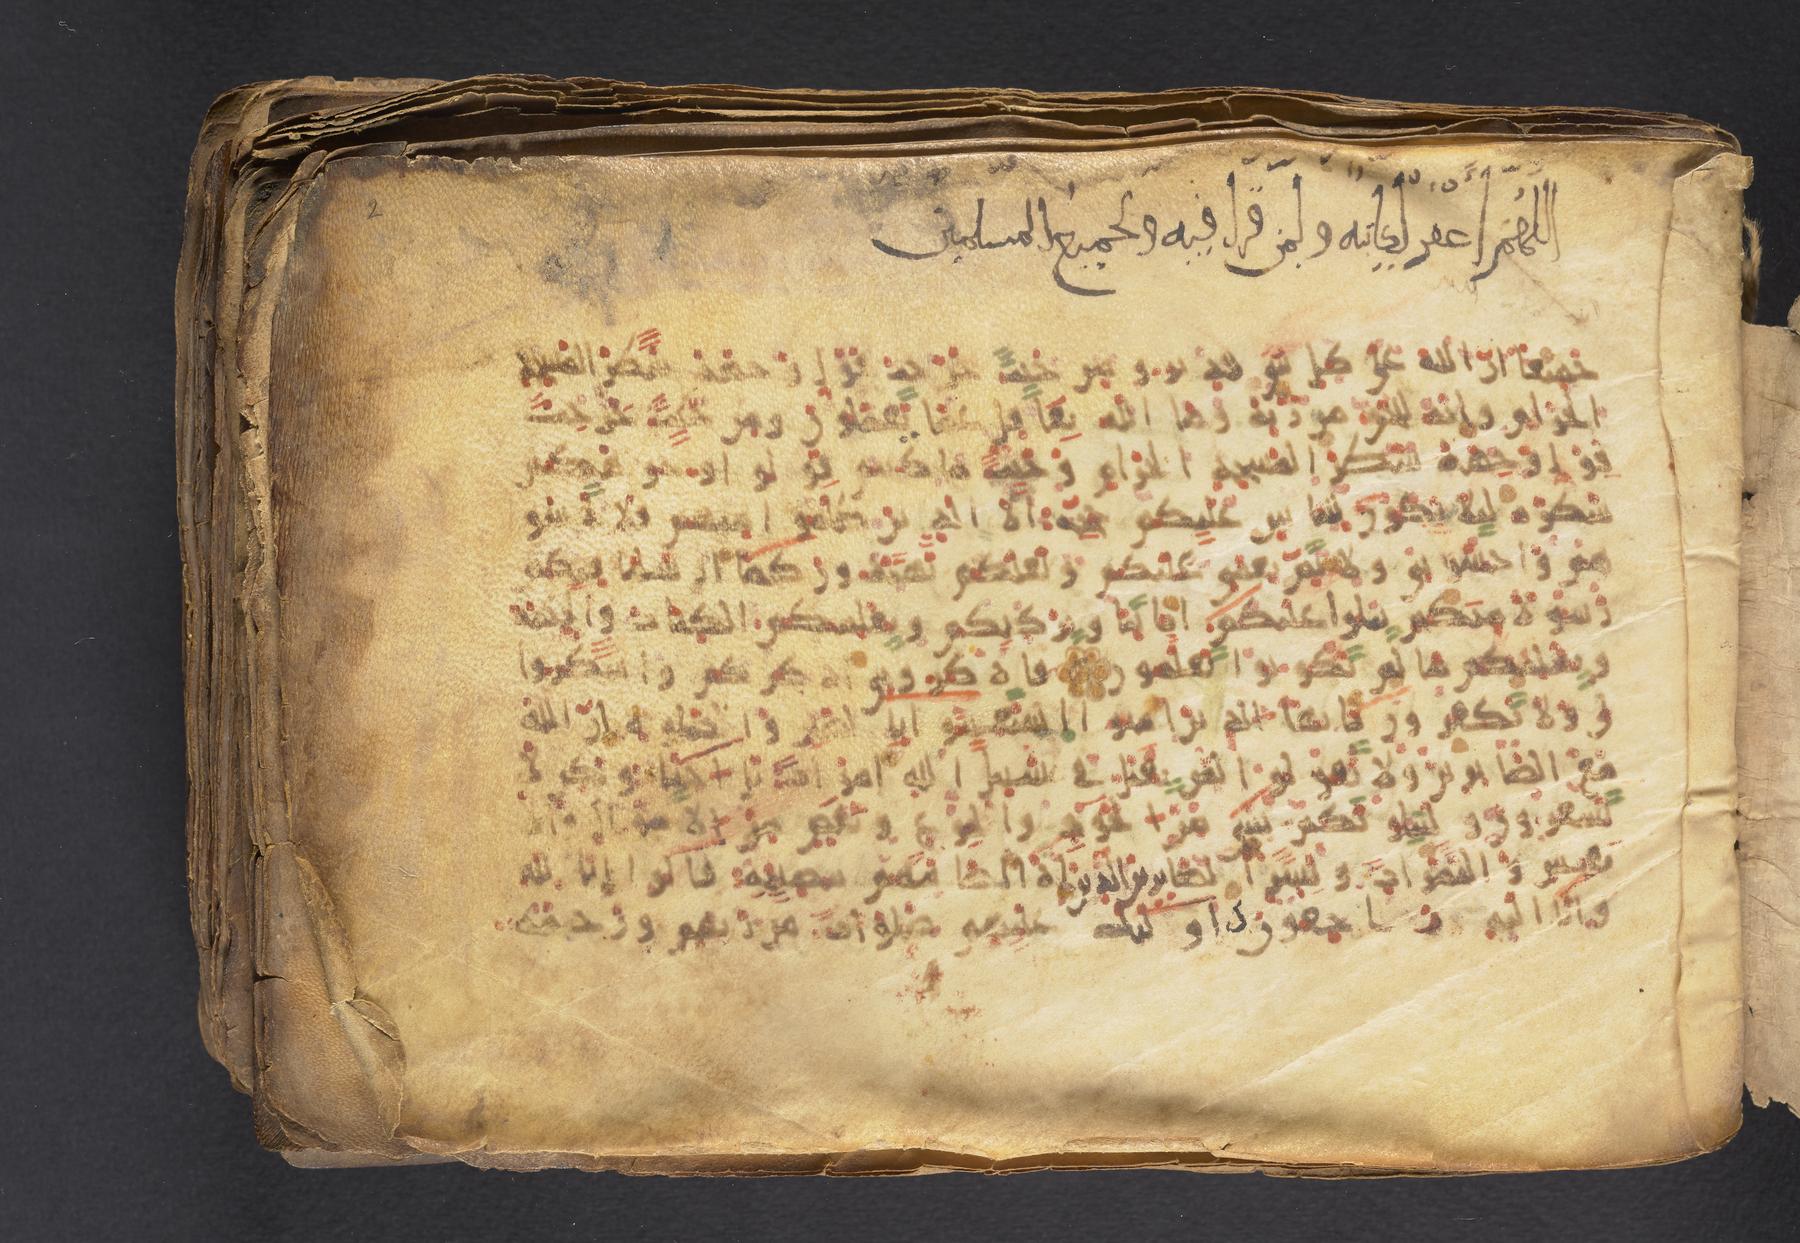 2
اللهم اغفر لكاتبه ولمن قرا فيه ولجميع المسلمين
جميعا ان الله على كل شي قدير ومن حيث خرجت فول وجهك شطر المسجد
الحرام وانه للحق من ربك وما الله بغافل عما تعملون ومن حيث خرجت
فول وجهك شطر المسجد الحرام وحيث ما كنتم فولوا وجوهكم
شطره ليلا يكون للناس عليكم حجة الا الذين ظلموا منهم فلا تخشو
هم واخشوني ولاتم نعمتي عليكم ولعلكم تهتدون كما ارسلنا فيكم
رسولا منكم يتلوا عليكم اياتنا ويزكيكم ويعلمكم الكتاب والحكمة
ويعلمكم ما لم تكونوا تعلمون فاذكروني اذكركم واشكروا
لي ولا تكفرون يايها الذين امنوا استعينوا بالصبر والصلوة ان الله
مع الصابرين ولا تقولوا لمن يقتل في سبيل الله اموات بل احيا ولكن لا
تشعرون ولنبلونكم بشي من الخوف والجوع ونقص من الاموال والا
نفس والثمرات وبشر الصابرين الذين اذا اصابتهم مصيبة قالوا انا لله
وانا اليه راجعون اوليك عليهم صلوات من ربهم ورحمة